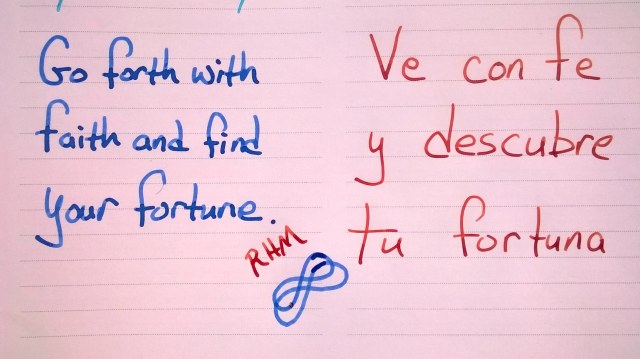 Go forth with
faith and find
your fortune.
Ve con fe
y descubre
tu fortuna
RHM